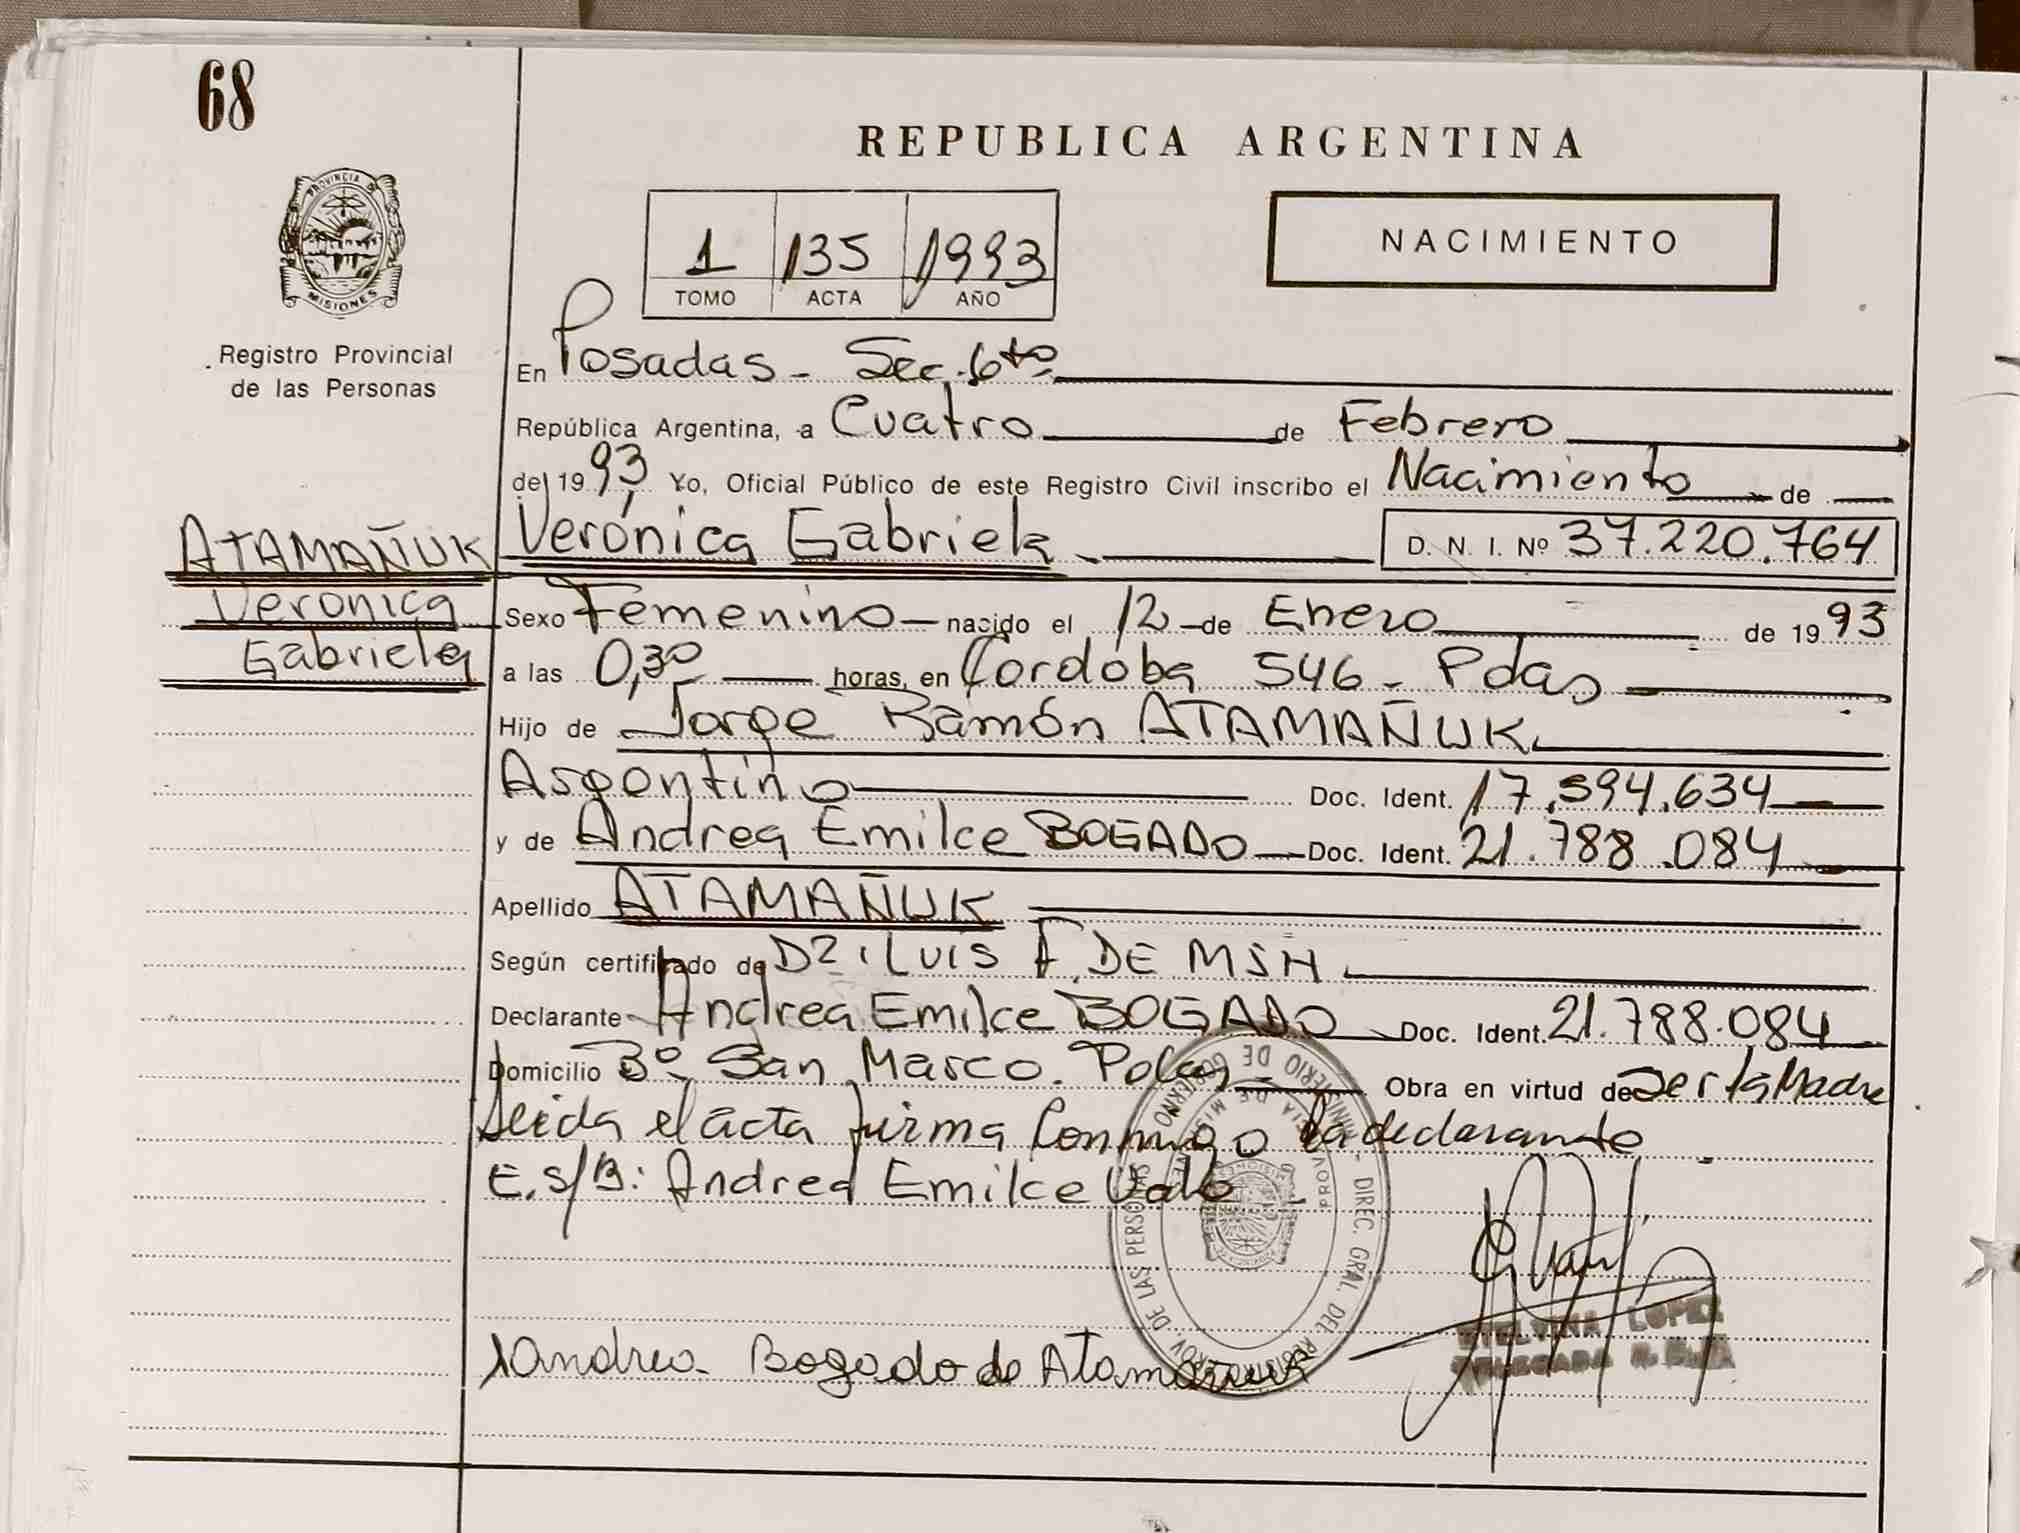 68
REPUBLICA ARGENTINA
PROVINCIA DE
MISIONES
Registro Provincial
de las Personas
1 135 1993
TOMO ACTA AÑO
NACIMIENTO
En Posadas - Sec. 6ta
República Argentina, a Cuatro de Febrero
del 1993 Yo, Oficial Público de este Registro Civil inscribo el Nacimiento de
ATAMAÑUK
Verónica
Gabriela
Verónica Gabriela D. N. I. Nº 37.220.764
Sexo Femenino nacido el 12 de Enero de 1993
a las 0,30 horas, en Cordoba 546 - Pdas
Hijo de Jorge Ramón ATAMAÑUK
Argentino Doc. Ident. 17.594.634
y de Andrea Emilce BOGADO Doc. Ident. 21.788.084
Apellido ATAMAÑUK
Según certificado de Luis F. DE
Declarante Andrea Emilce BOGADO Doc. Ident. 21.788.084
Domicilio Bº San Marco. Pdas Obra en virtud de Ser la Madre
Leida el acta firma Conmigo la declarante
E. s/B: Andrea Emilce Vale
MINISTERIO DE GOBIERNO - DIREC. GRAL. DEL REGISTRO PROV. DE LAS PERSONAS
PROVINCIA DE MISIONES
Andrea Bogado de Atamañuk
LOPEZ
DELEGADA